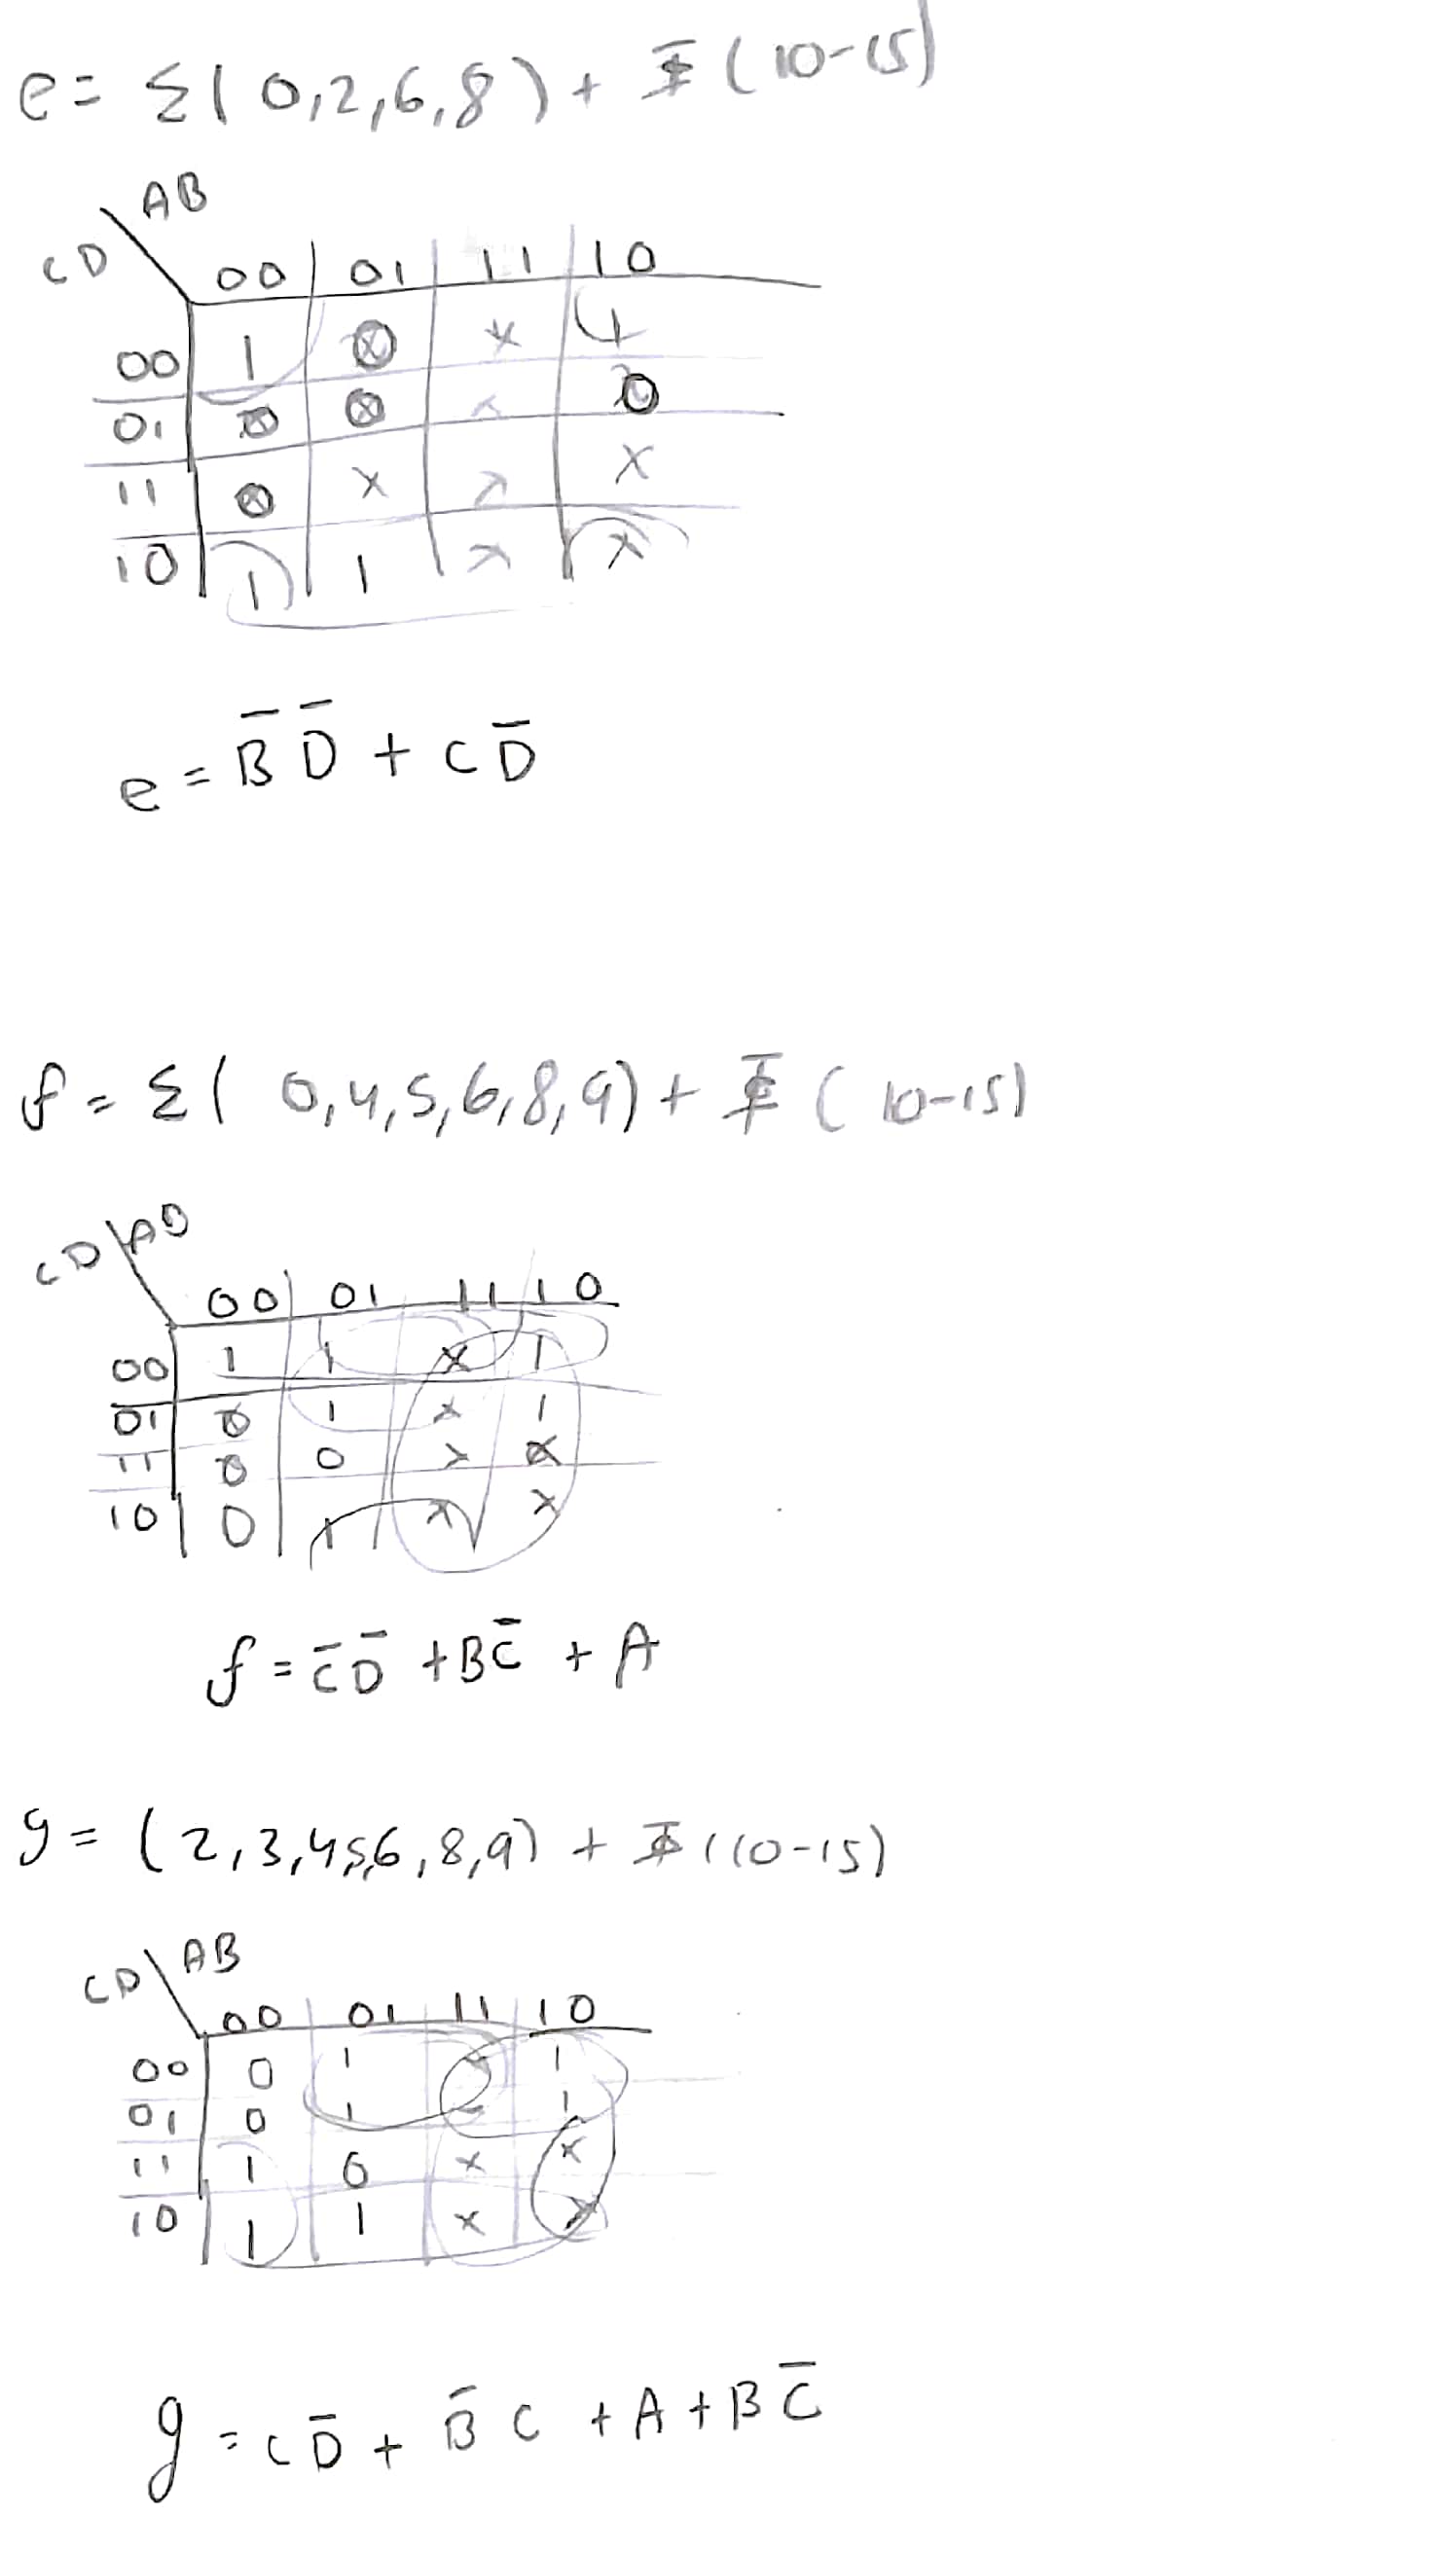 e = Σ( 0,2,6,8 ) + Φ ( 10-15)
AB
CD
00 01 11 10
00 1 0 x 1
01 0 0 x 0
11 0 x x x
10 1 1 x x
e = B̅ D̅ + C D̅
f = Σ( 0,4,5,6,8,9) + Φ ( 10-15)
CD AB
00 01 11 10
00 1 1 x 1
01 0 1 x 1
11 0 0 x x
10 0 1 x x
f = C̅ D̅ + B C̅ + A
g = ( 2,3,4,5,6,8,9) + Φ (10-15)
CD AB
00 01 11 10
00 0 1 x 1
01 0 1 1
11 1 0 x x
10 1 1 x x
g = C D̅ + B̅ C + A + B C̅